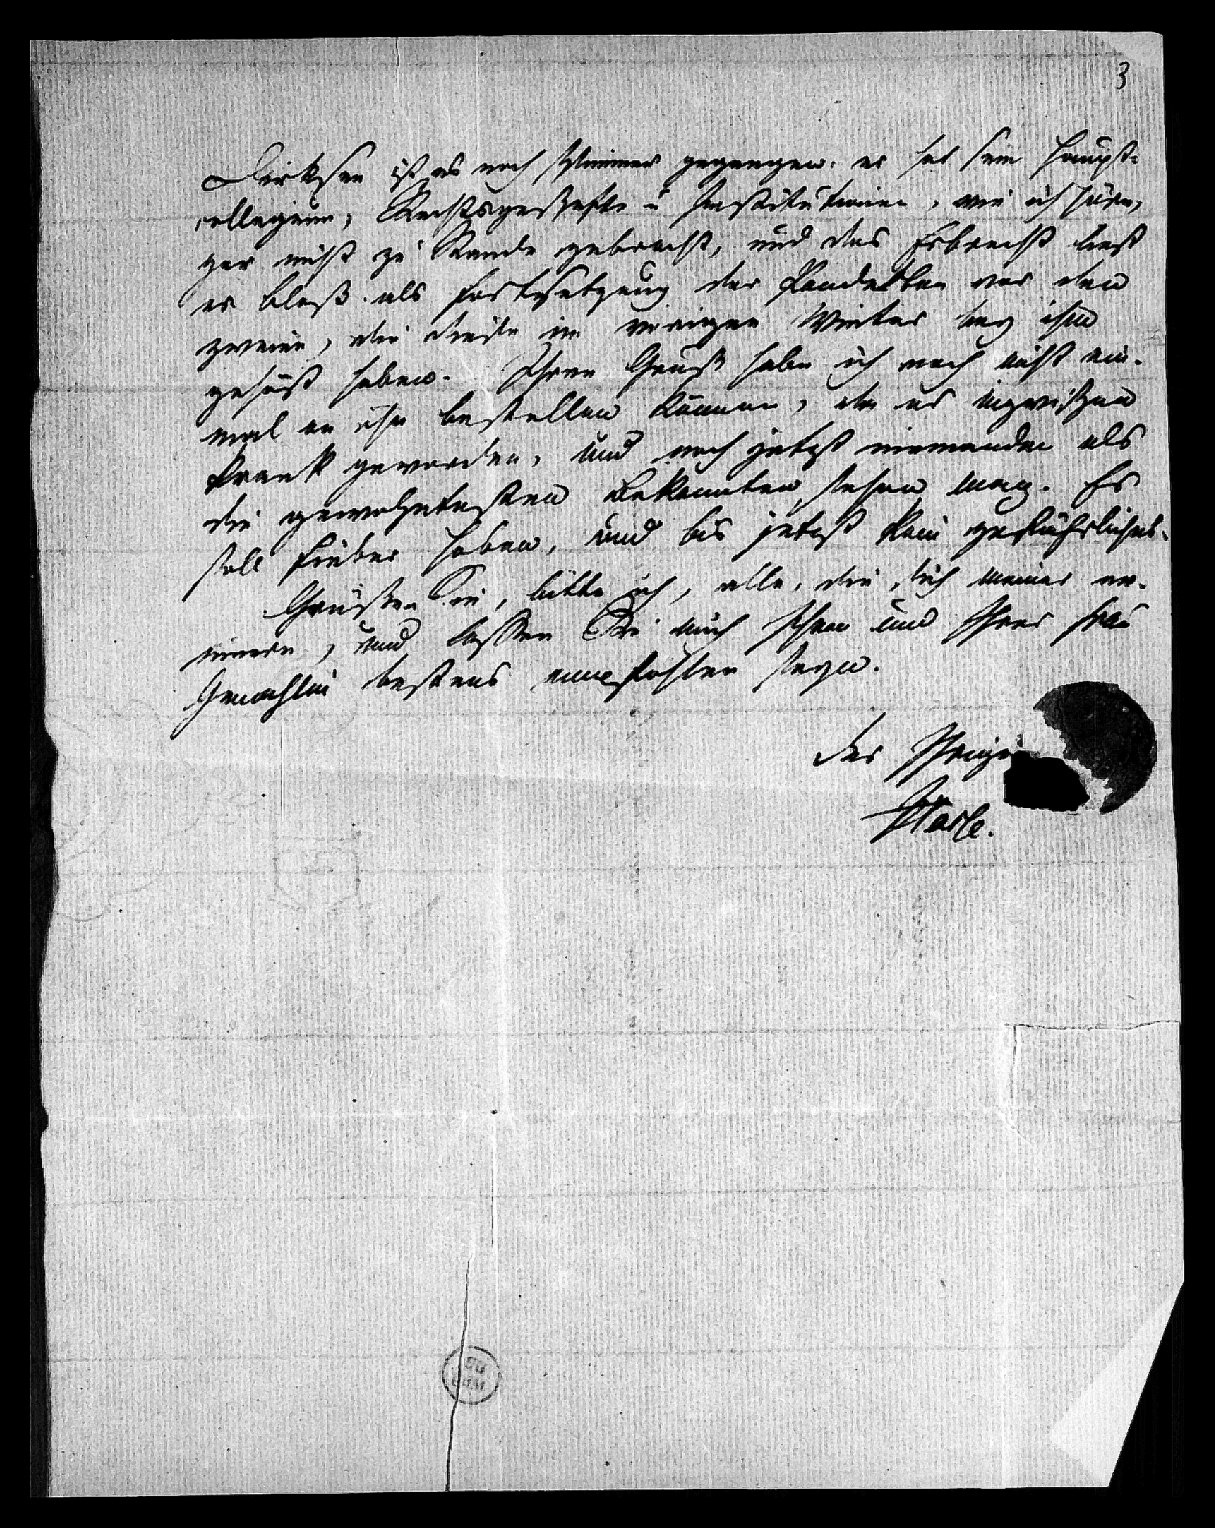 3
Dirksen ist es noch schlimmer gegangen. er hat sein Haupt-
collegium, Rechtsgeschichte u Institutionen, wie ich höre,
gar nicht zu Stande gebracht, und das Erbrecht liest
er bloß als Fortsetzung der Pandekten vor den
zweien, die diese im vorigen Winter bey ihm
gehört haben. Ihren Gruß habe ich noch nicht ein-
mal an ihn bestellen können, da er inzwischen
krank geworden, und noch jetzt niemanden als
die gewohntesten Bekannten sehen mag. Es
soll Fieber haben, und bis jetzt kein gefährliches.
Grüßen Sie, bitte ich, alle, die sich meiner er-
innern, und lassen Sie mich Ihnen und Ihrer Frau
Gemahlin bestens empfohlen seyn.
der Ihrige